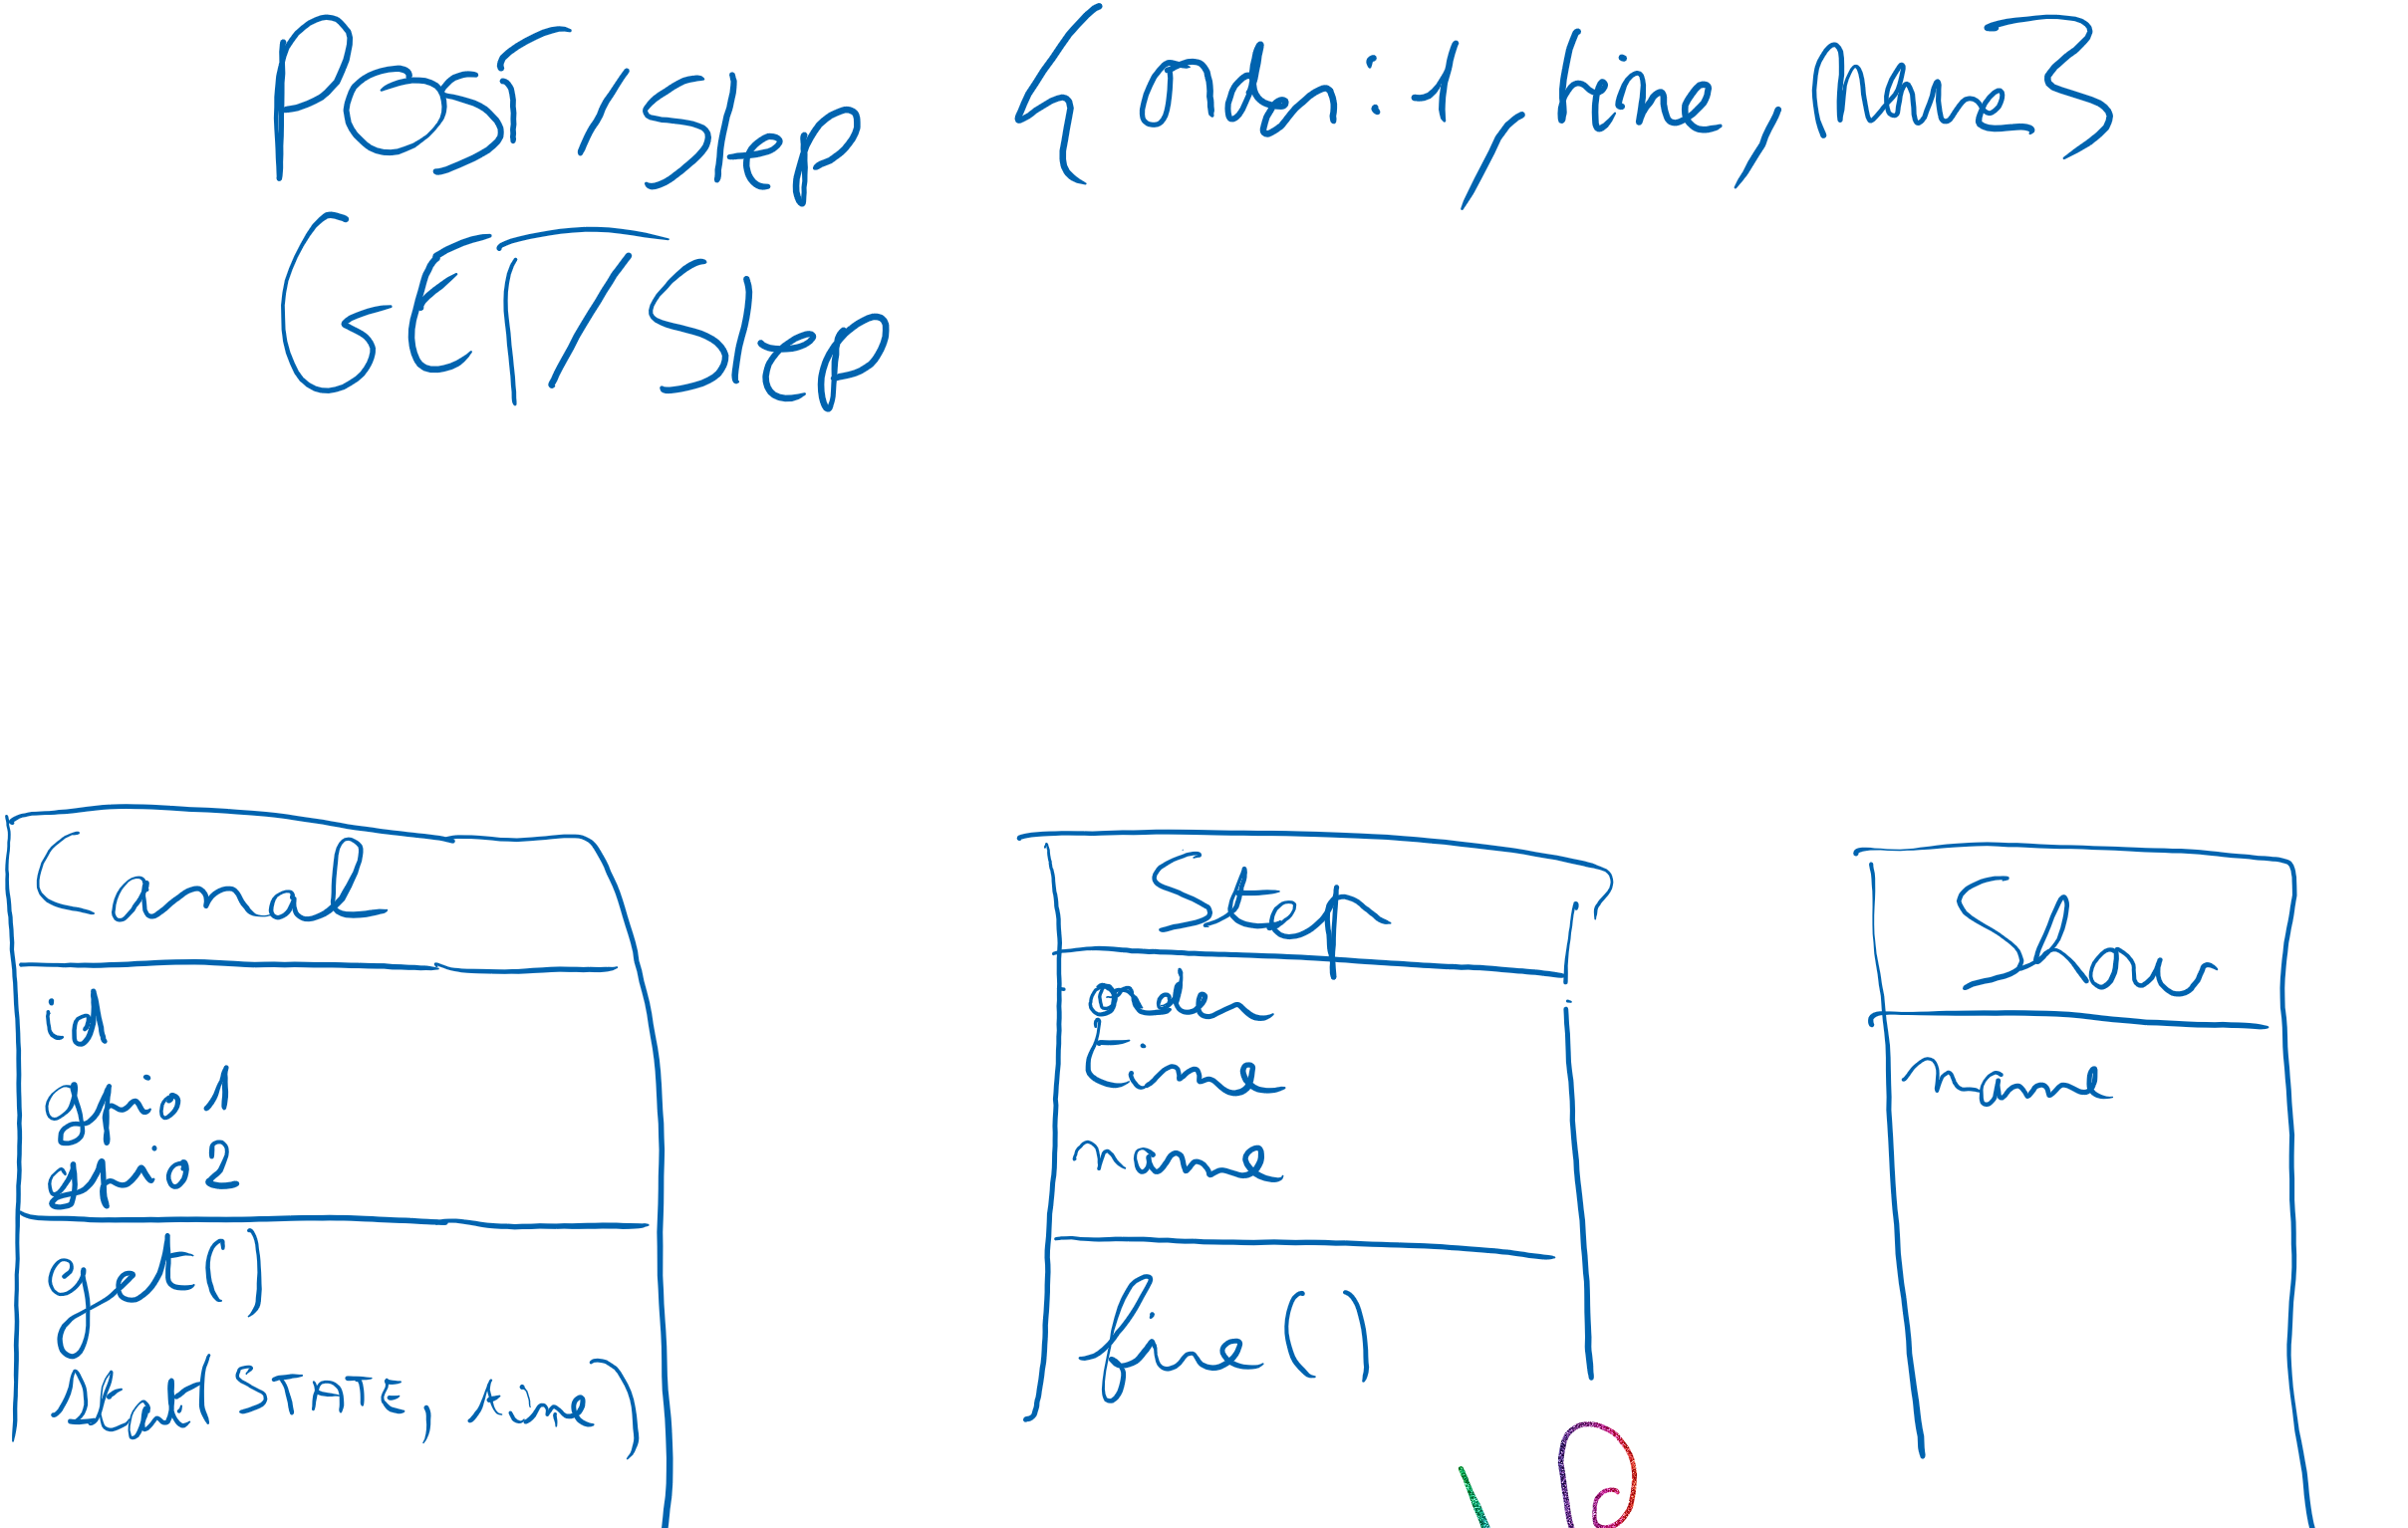 POST /Step {ordri:1, time, Name}
GET /Step
Canal
id
gpio1
gpio2
get()
start(STATE, time)
Step
order
time
name
fire()
Show
name